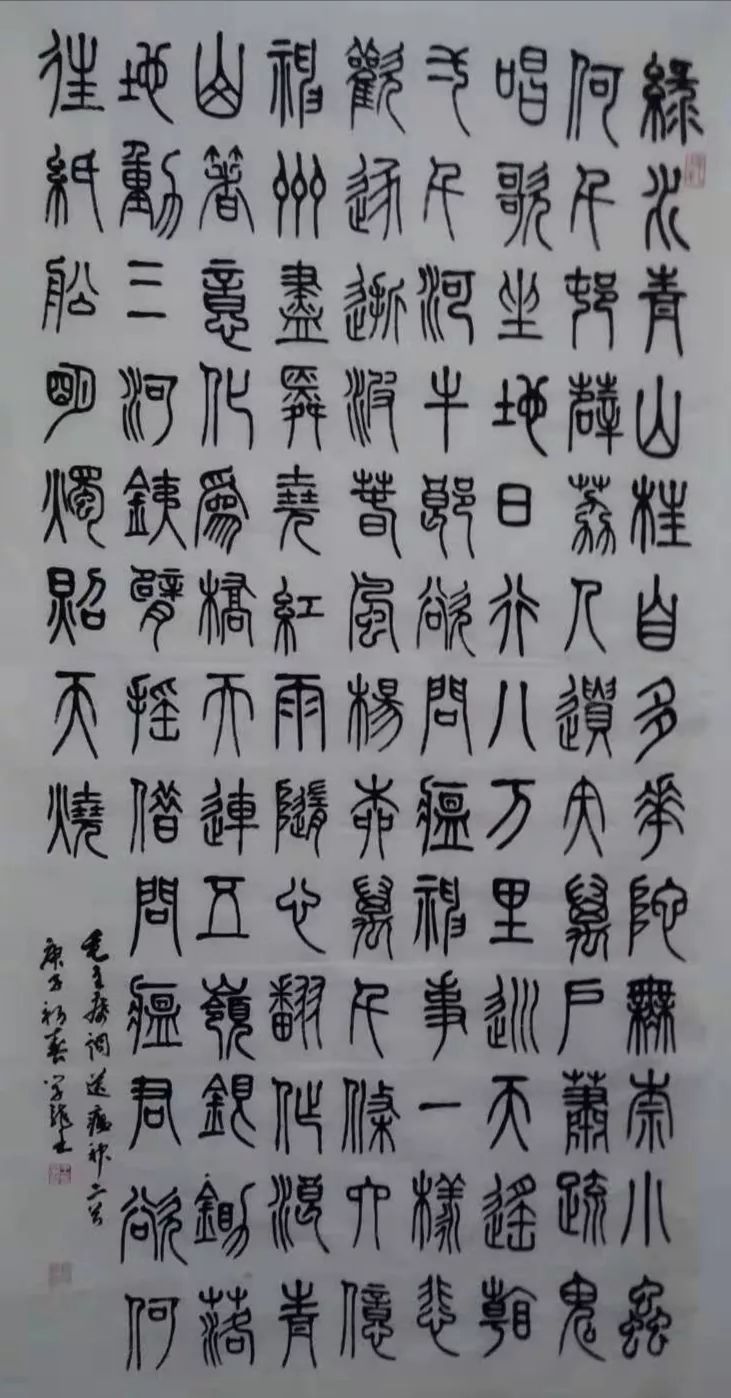 綠水青山枉自多華陀無奈小蟲
何千邨薜荔人遺矢萬戶蕭疏鬼
唱歌坐地日行八万里巡天遙看
弌千河牛郎欲問瘟神事一樣悲
歡逐逝波春風楊柳萬千條六億
神州盡舜堯紅雨隨心翻作浪青
山著意化為橋天連五嶺銀鋤落
地動三河鐵臂搖借問瘟君欲何
往紙船明燭照天燒
毛主席詞送瘟神二首
庚子初春學龍書